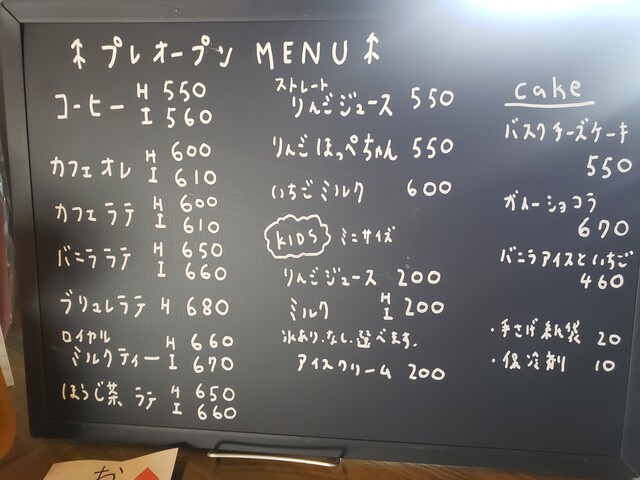 プレオープン MENU
コーヒー H 550
I 560
カフェオレ H 600
I 610
カフェラテ H 600
I 610
バニララテ H 650
I 660
ブリュレラテ H 680
ロイヤル
ミルクティー H 660
I 670
ほうじ茶 ラテ H 650
I 660
ストレート
りんごジュース 550
りんごほっぺちゃん 550
いちごミルク 600
KIDS ミニサイズ
りんごジュース 200
ミルク H
I 200
氷あり、なし、選べます。
アイスクリーム 200
cake
バスクチーズケーキ
550
ガトーショコラ
670
バニラアイスといちご
460
・手さげ紙袋 20
・保冷剤 10